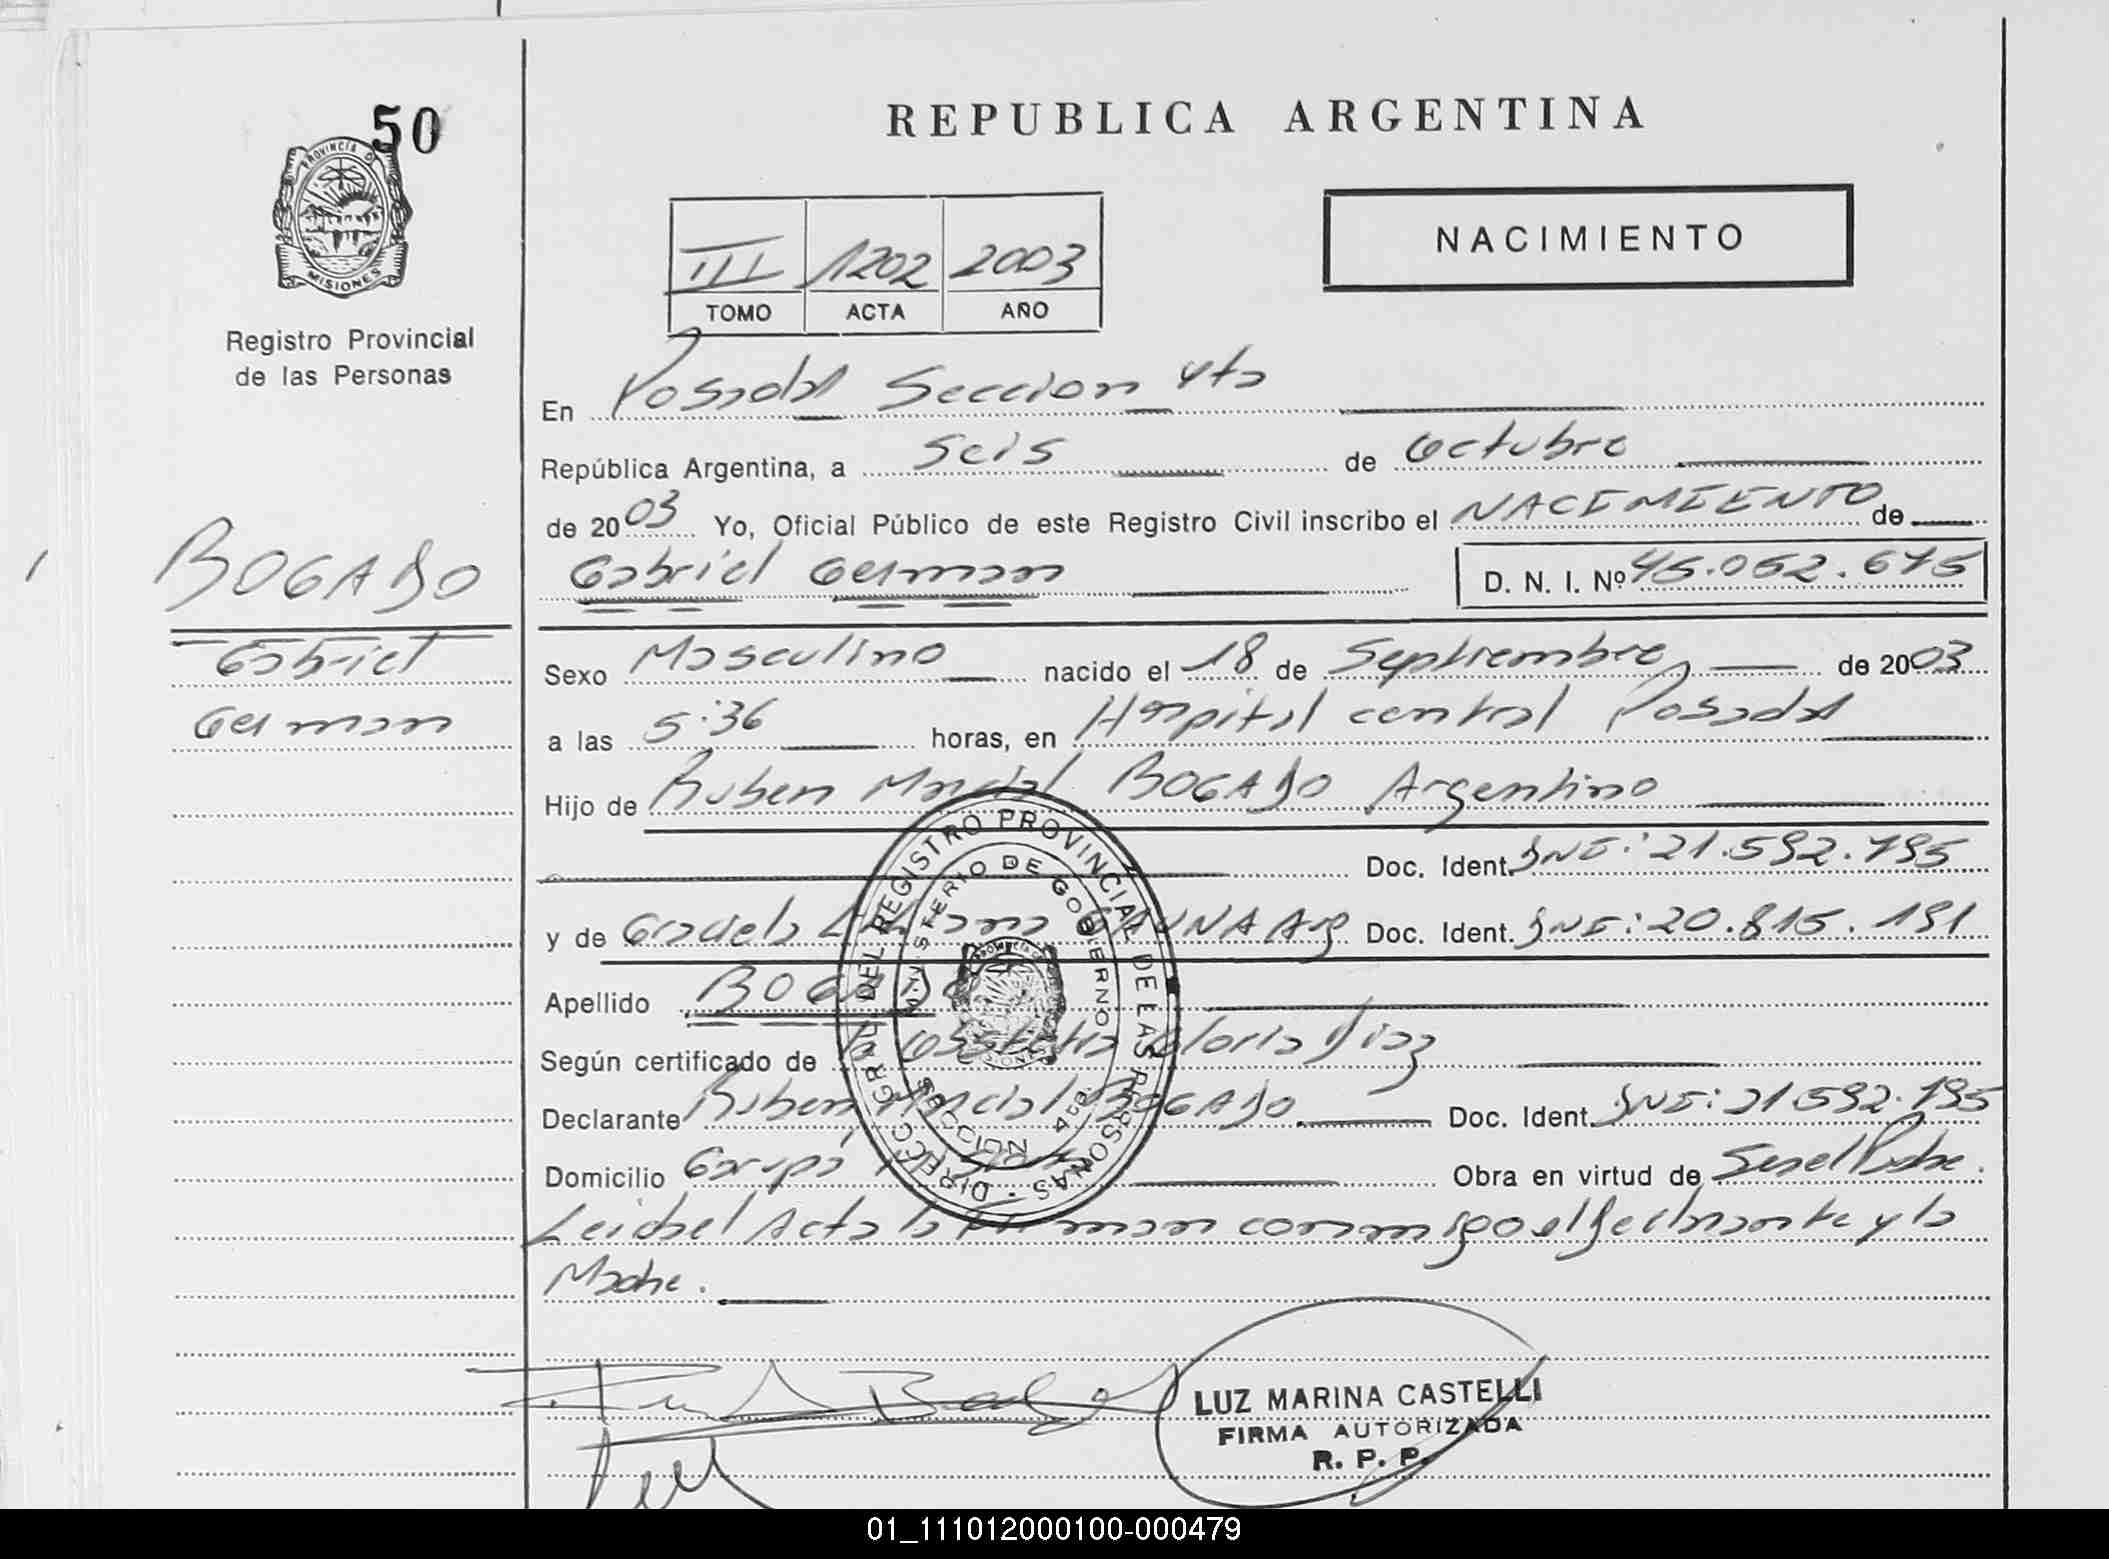 50
PROVINCIA DE
MISIONES
Registro Provincial
de las Personas
BOGADO
Gabriel
German
REPUBLICA ARGENTINA
III 1202 2003
TOMO ACTA AÑO
NACIMIENTO
En Posadas Seccion 4ta
República Argentina, a Seis de Octubre
de 2003 Yo, Oficial Público de este Registro Civil inscribo el NACIMIENTO de
Gabriel German D. N. I. Nº 45.052.675
Sexo Masculino nacido el 18 de Septiembre de 2003
a las 5:36 horas, en Hospital central Posadas
Hijo de Ruben Marcial BOGADO Argentino
Doc. Ident. DNI: 21.592.795
y de Graciela GAUNA Arg Doc. Ident. DNI: 20.815.191
Apellido BOGADO
Según certificado de la Obstetra Gloria Diaz
Declarante Ruben Marcial BOGADO Doc. Ident. DNI: 21.592.795
Domicilio Garupá Obra en virtud de Ser el Padre.
Leida el Acta la Firman conmigo el declarante y la
Madre.
DIRECC. GRAL. DEL REGISTRO PROVINCIAL DE LAS PERSONAS
MINISTERIO DE GOBIERNO
SECCION 4ta.
LUZ MARINA CASTELLI
FIRMA AUTORIZADA
R. P. P.
01_111012000100-000479